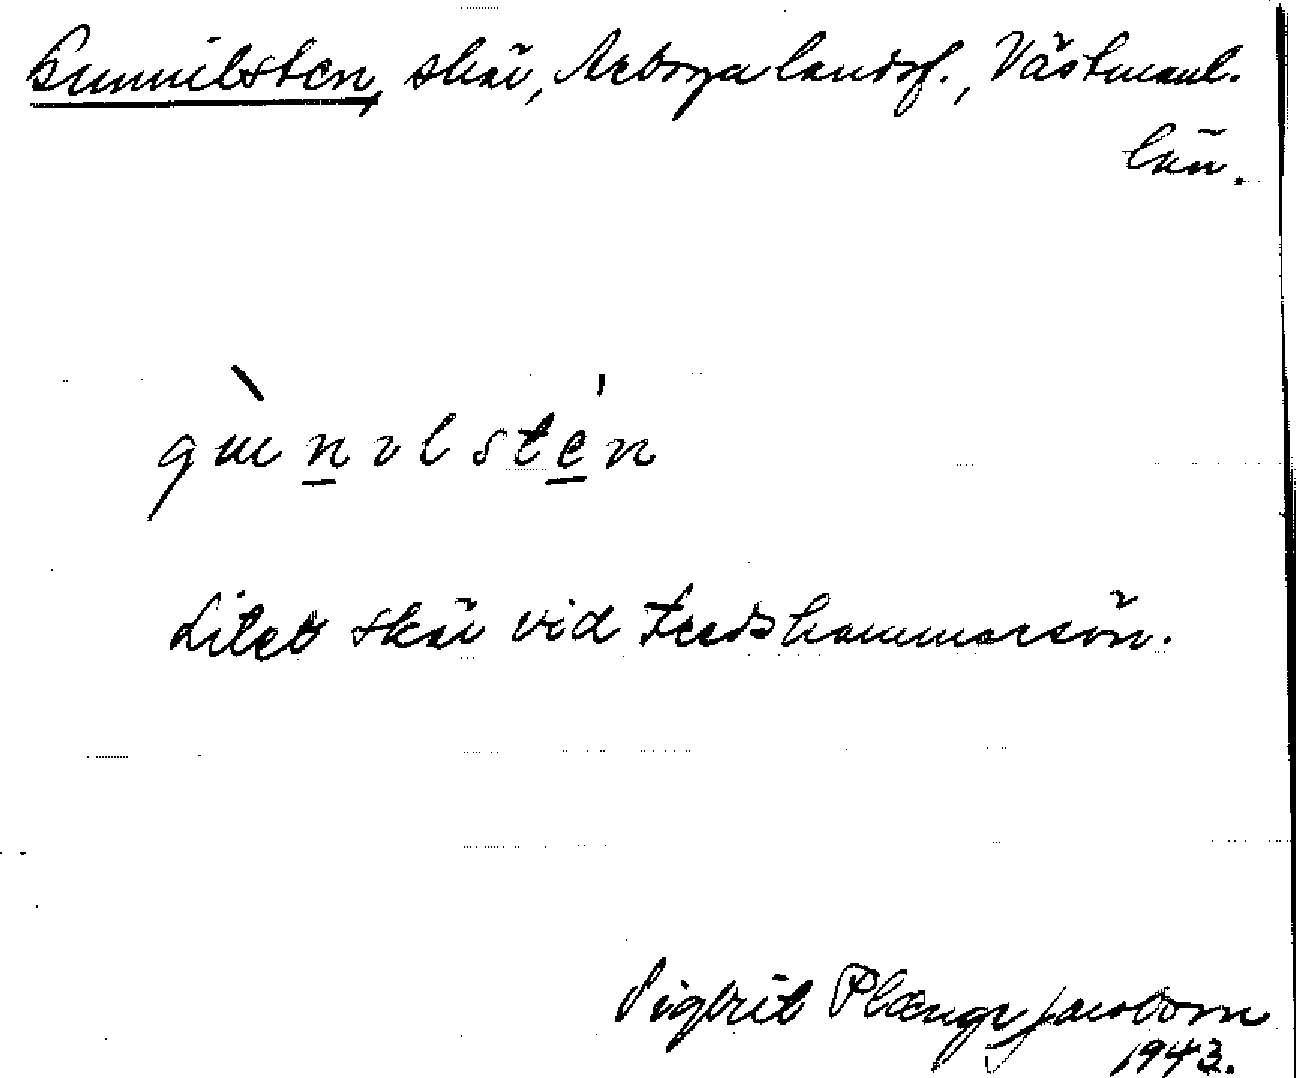 Gunnilsten, skär, Arboga landsf., Västmanl.
län.
gunnilsten
Litet skär vid Tedshammarsön.
Sigbrit Plænge Jacobson
1943.